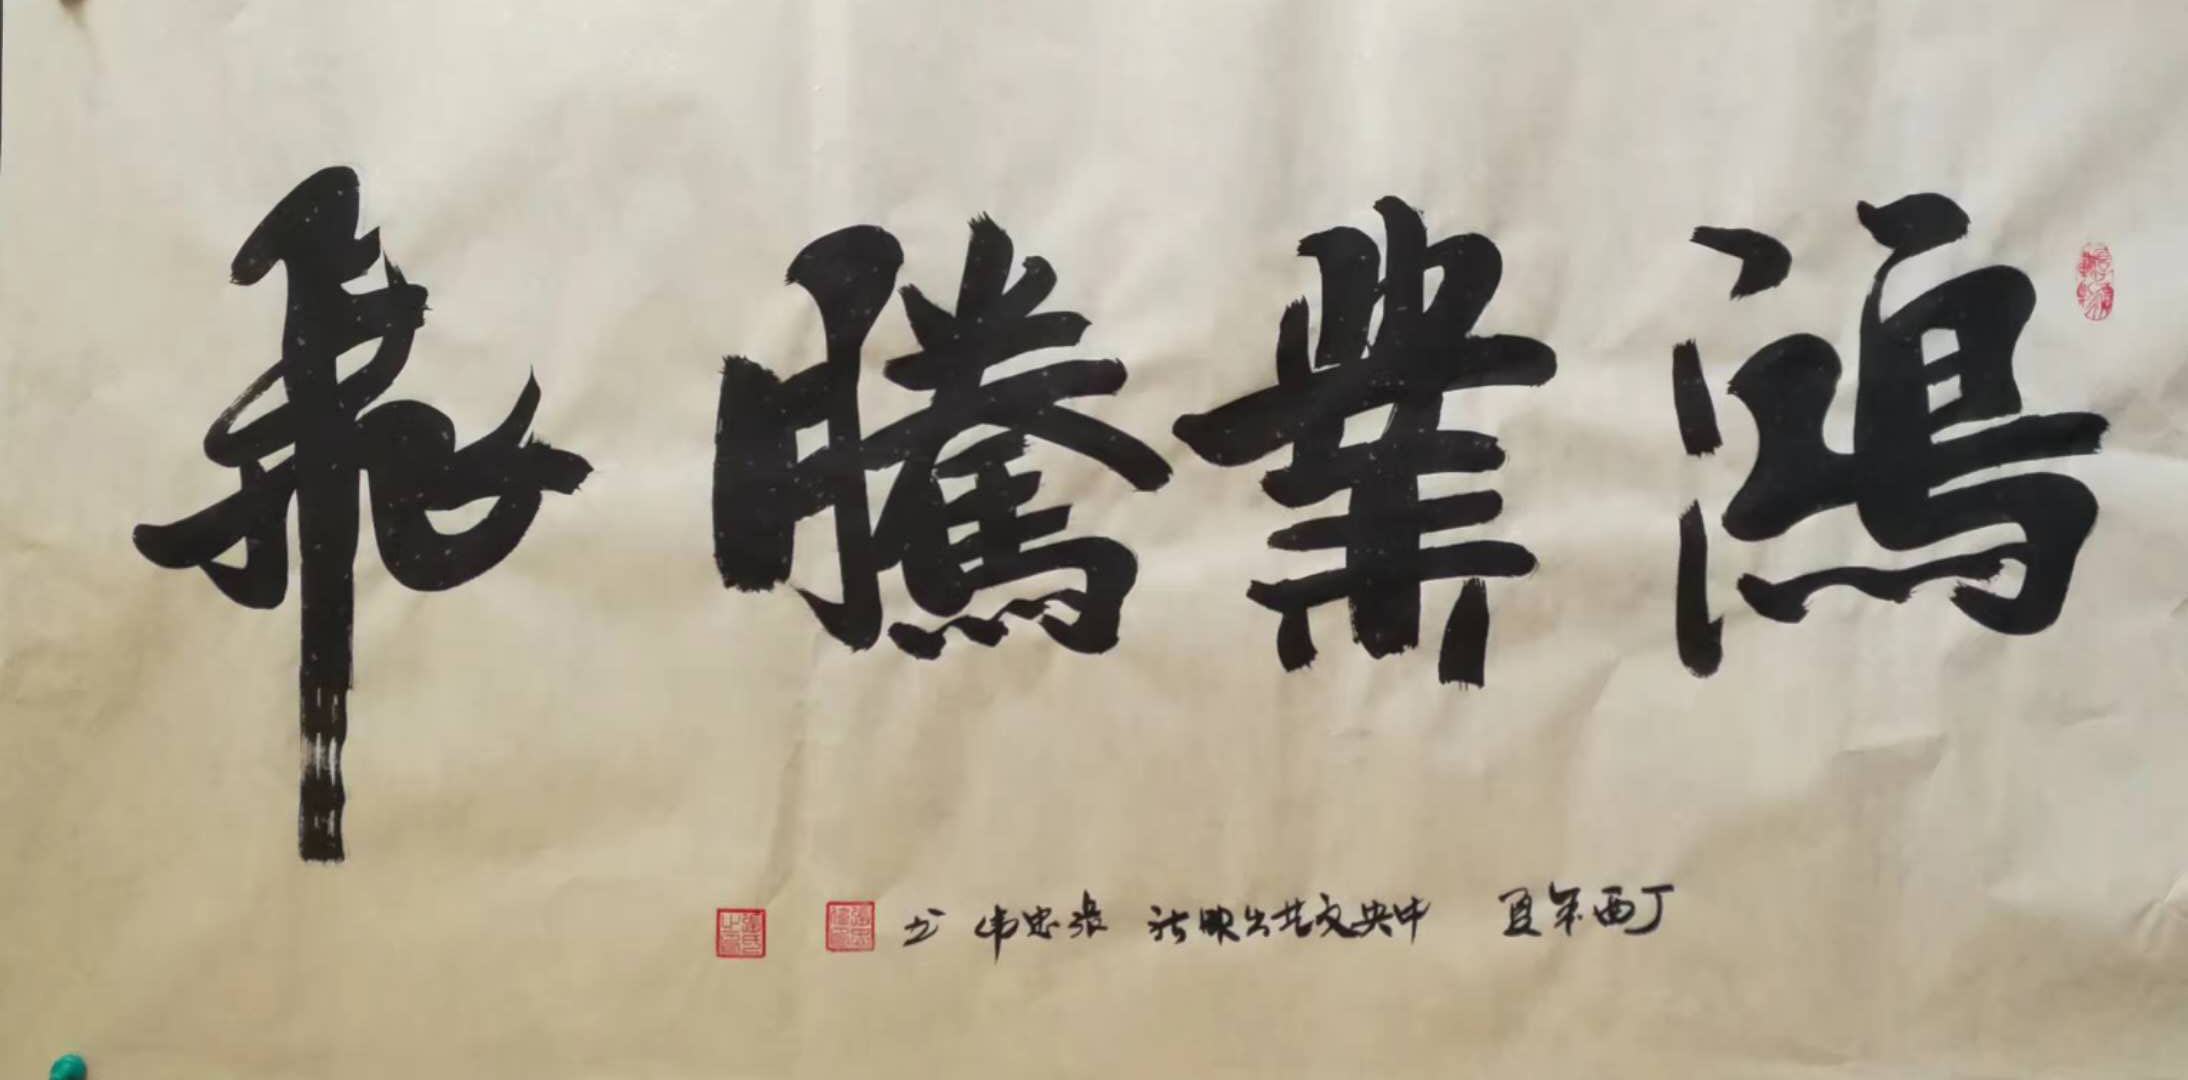 鴻業騰飛
丁酉年夏 中央文艺出版社 張忠韦书